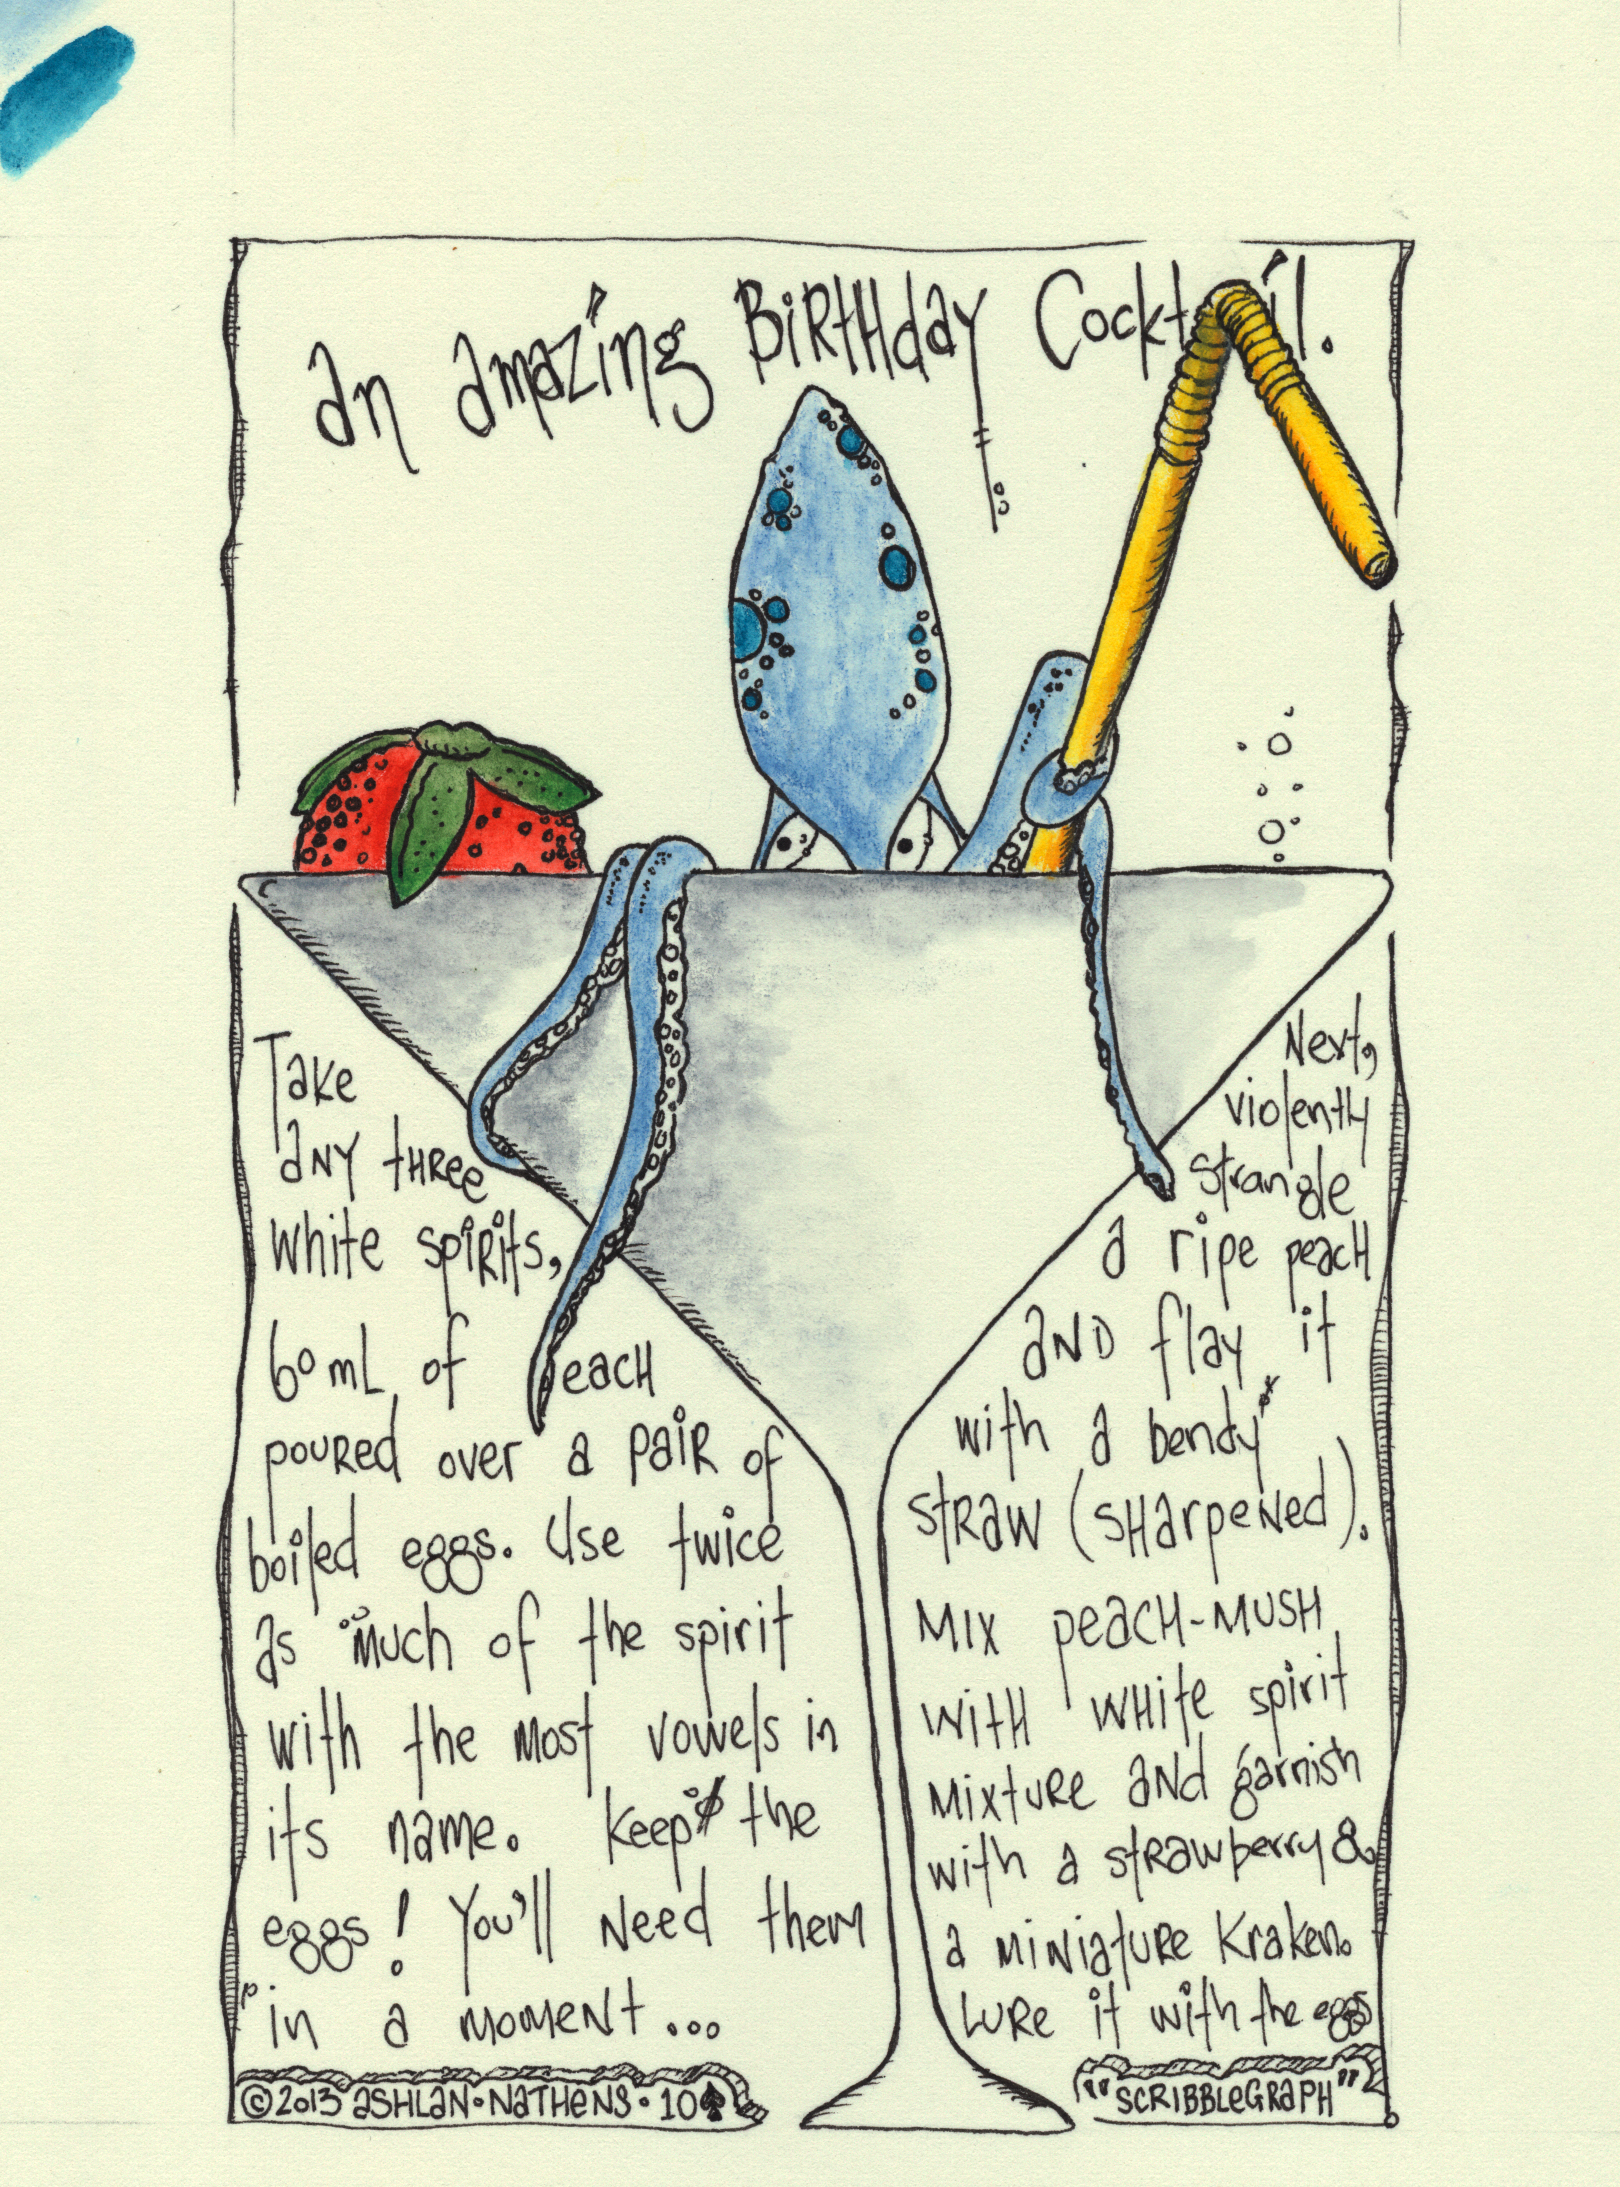 an amazing BiRtHday Cocktail.
Take
aNY tHRee
white spiRits,
60 mL of eacH
pouRed over a paiR of
boiled eggs. Use twice
as much of the spirit
with the most vowels in
its name. Keep the
eggs! You'll Need them
in a momeNt...
Next,
violently
strangle
a ripe peacH
aND flay it
with a bendy
stRaw (sHarpeNed).
Mix peacH-MUSH
witH wHite spirit
MixtuRe aNd garnish
with a stRawberry &
a miNiatuRe KrakeN.
LuRe it with the eggs
©2013 aSHLaN·NaTHeNS·10♠
"SCRIBBLeGRaPH"